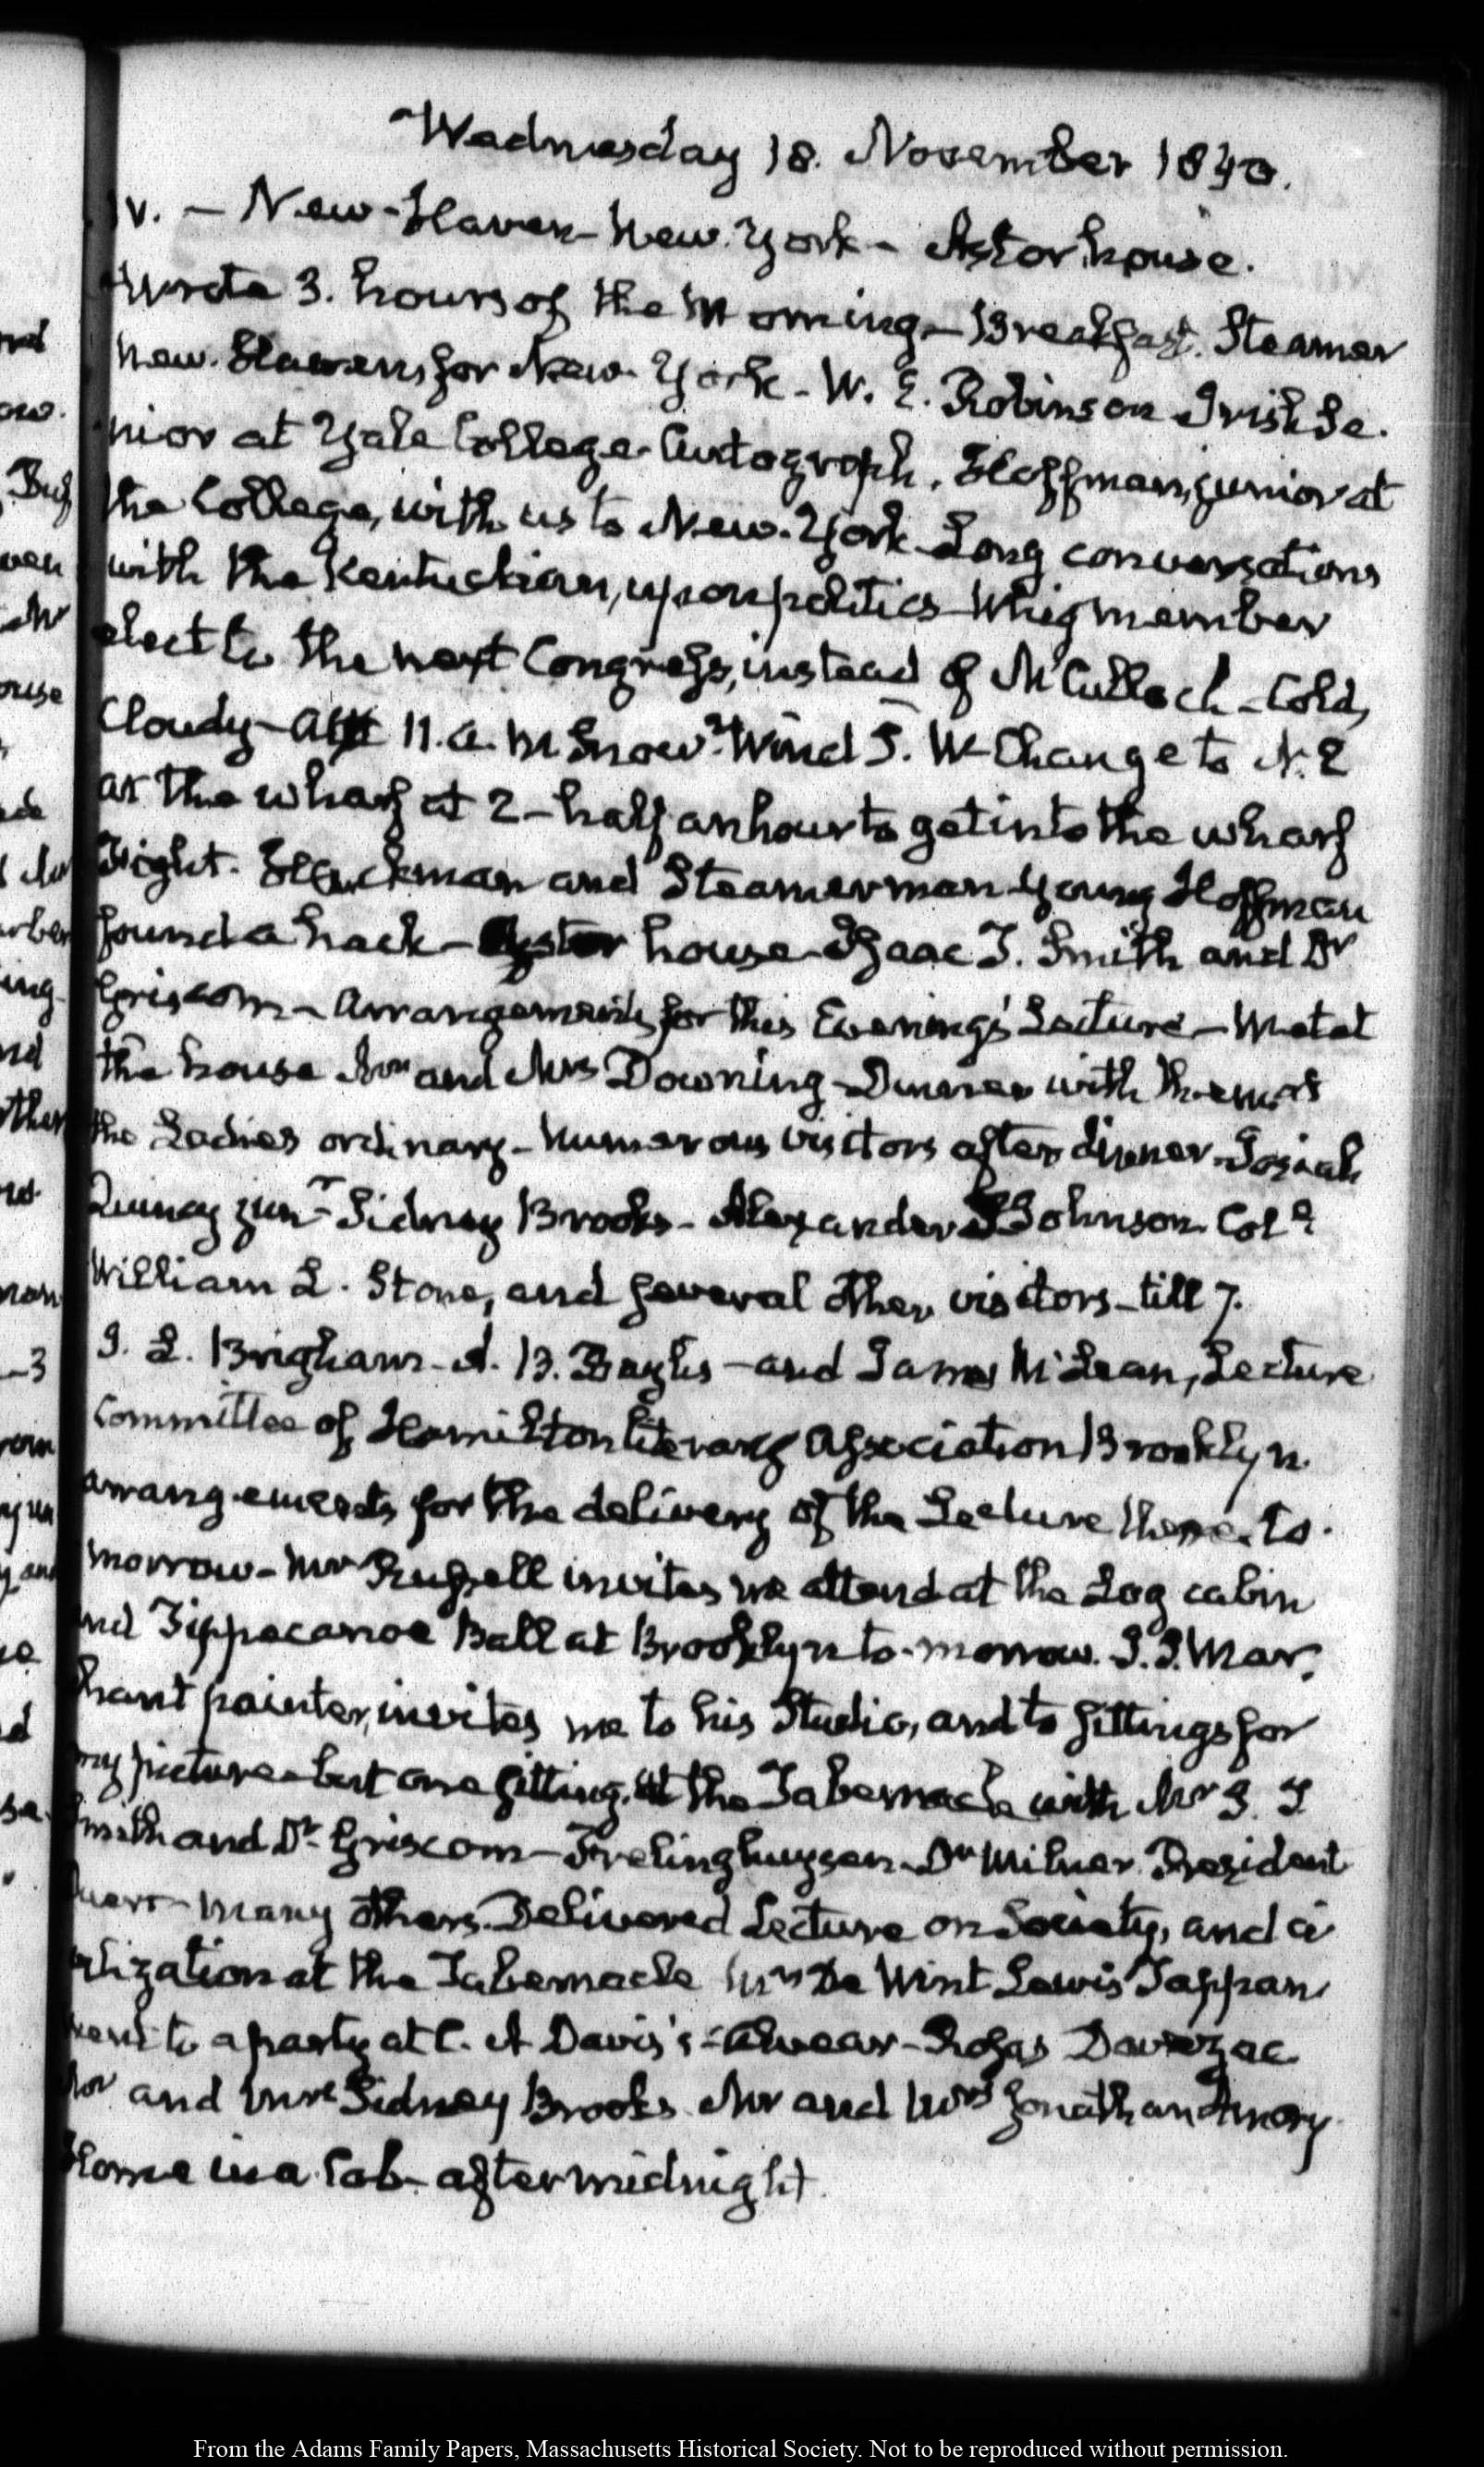 Wednesday 18. November 1840.
IV. — New-Haven – New-York – Astor house.
Wrote 3. hours of the Morning – Breakfast. Steamer
New-Haven, for New-York – W. E. Robinson Irish Se-
nior at Yale College Autograph. Hoffman, junior at
the College, with us to New-York – Long conversations
with the Kentuckian, upon politics – Whig member
elect to the next Congress, instead of McCulloch – Cold,
Cloudy – 11. A. M. Snow. Wind S. W. Change to N. E
at the wharf at 2 – half an hour to get into the wharf
Fight. Hackman and Steamerman – young Hoffman
found a hack – Astor house – Isaac T. Smith and Dr
Griscom – Arrangements for this Evening's Lecture – Met at
the house Mr and Mrs Downing – Dinner with them at
the Ladies ordinary – numerous visitors after dinner – Josiah
Quincy junr Sidney Brooks – Alexander Johnson. Coll
William L. Stone, and several other visitors – till 7.
J. L. Brigham – A. B. – and James McLean, Lecture
Committee of Hamilton literary Association Brooklyn.
arrangements for the delivery of the Lecture there to-
morrow – Mr Russell invites me attend at the Log cabin
and Tippecanoe Ball at Brooklyn to-morrow. Mar-
chant painter, invites me to his Studio, and to sittings for
my picture – but one sitting. At the Tabernacle with Mr I. T.
Smith and Dr Griscom – Frelinghuysen – Dr Milnor President
Duer – many others. Delivered Lecture on Society, and ci
vilization at the Tabernacle Mrs De Wint Lewis Tappan
went to a party at C. A Davis's – Alvear – Rosas Davezac
Mr and Mrs Sidney Brooks Mr and Mrs Jonathan Amory
Home in a Cab – after midnight.
From the Adams Family Papers, Massachusetts Historical Society. Not to be reproduced without permission.